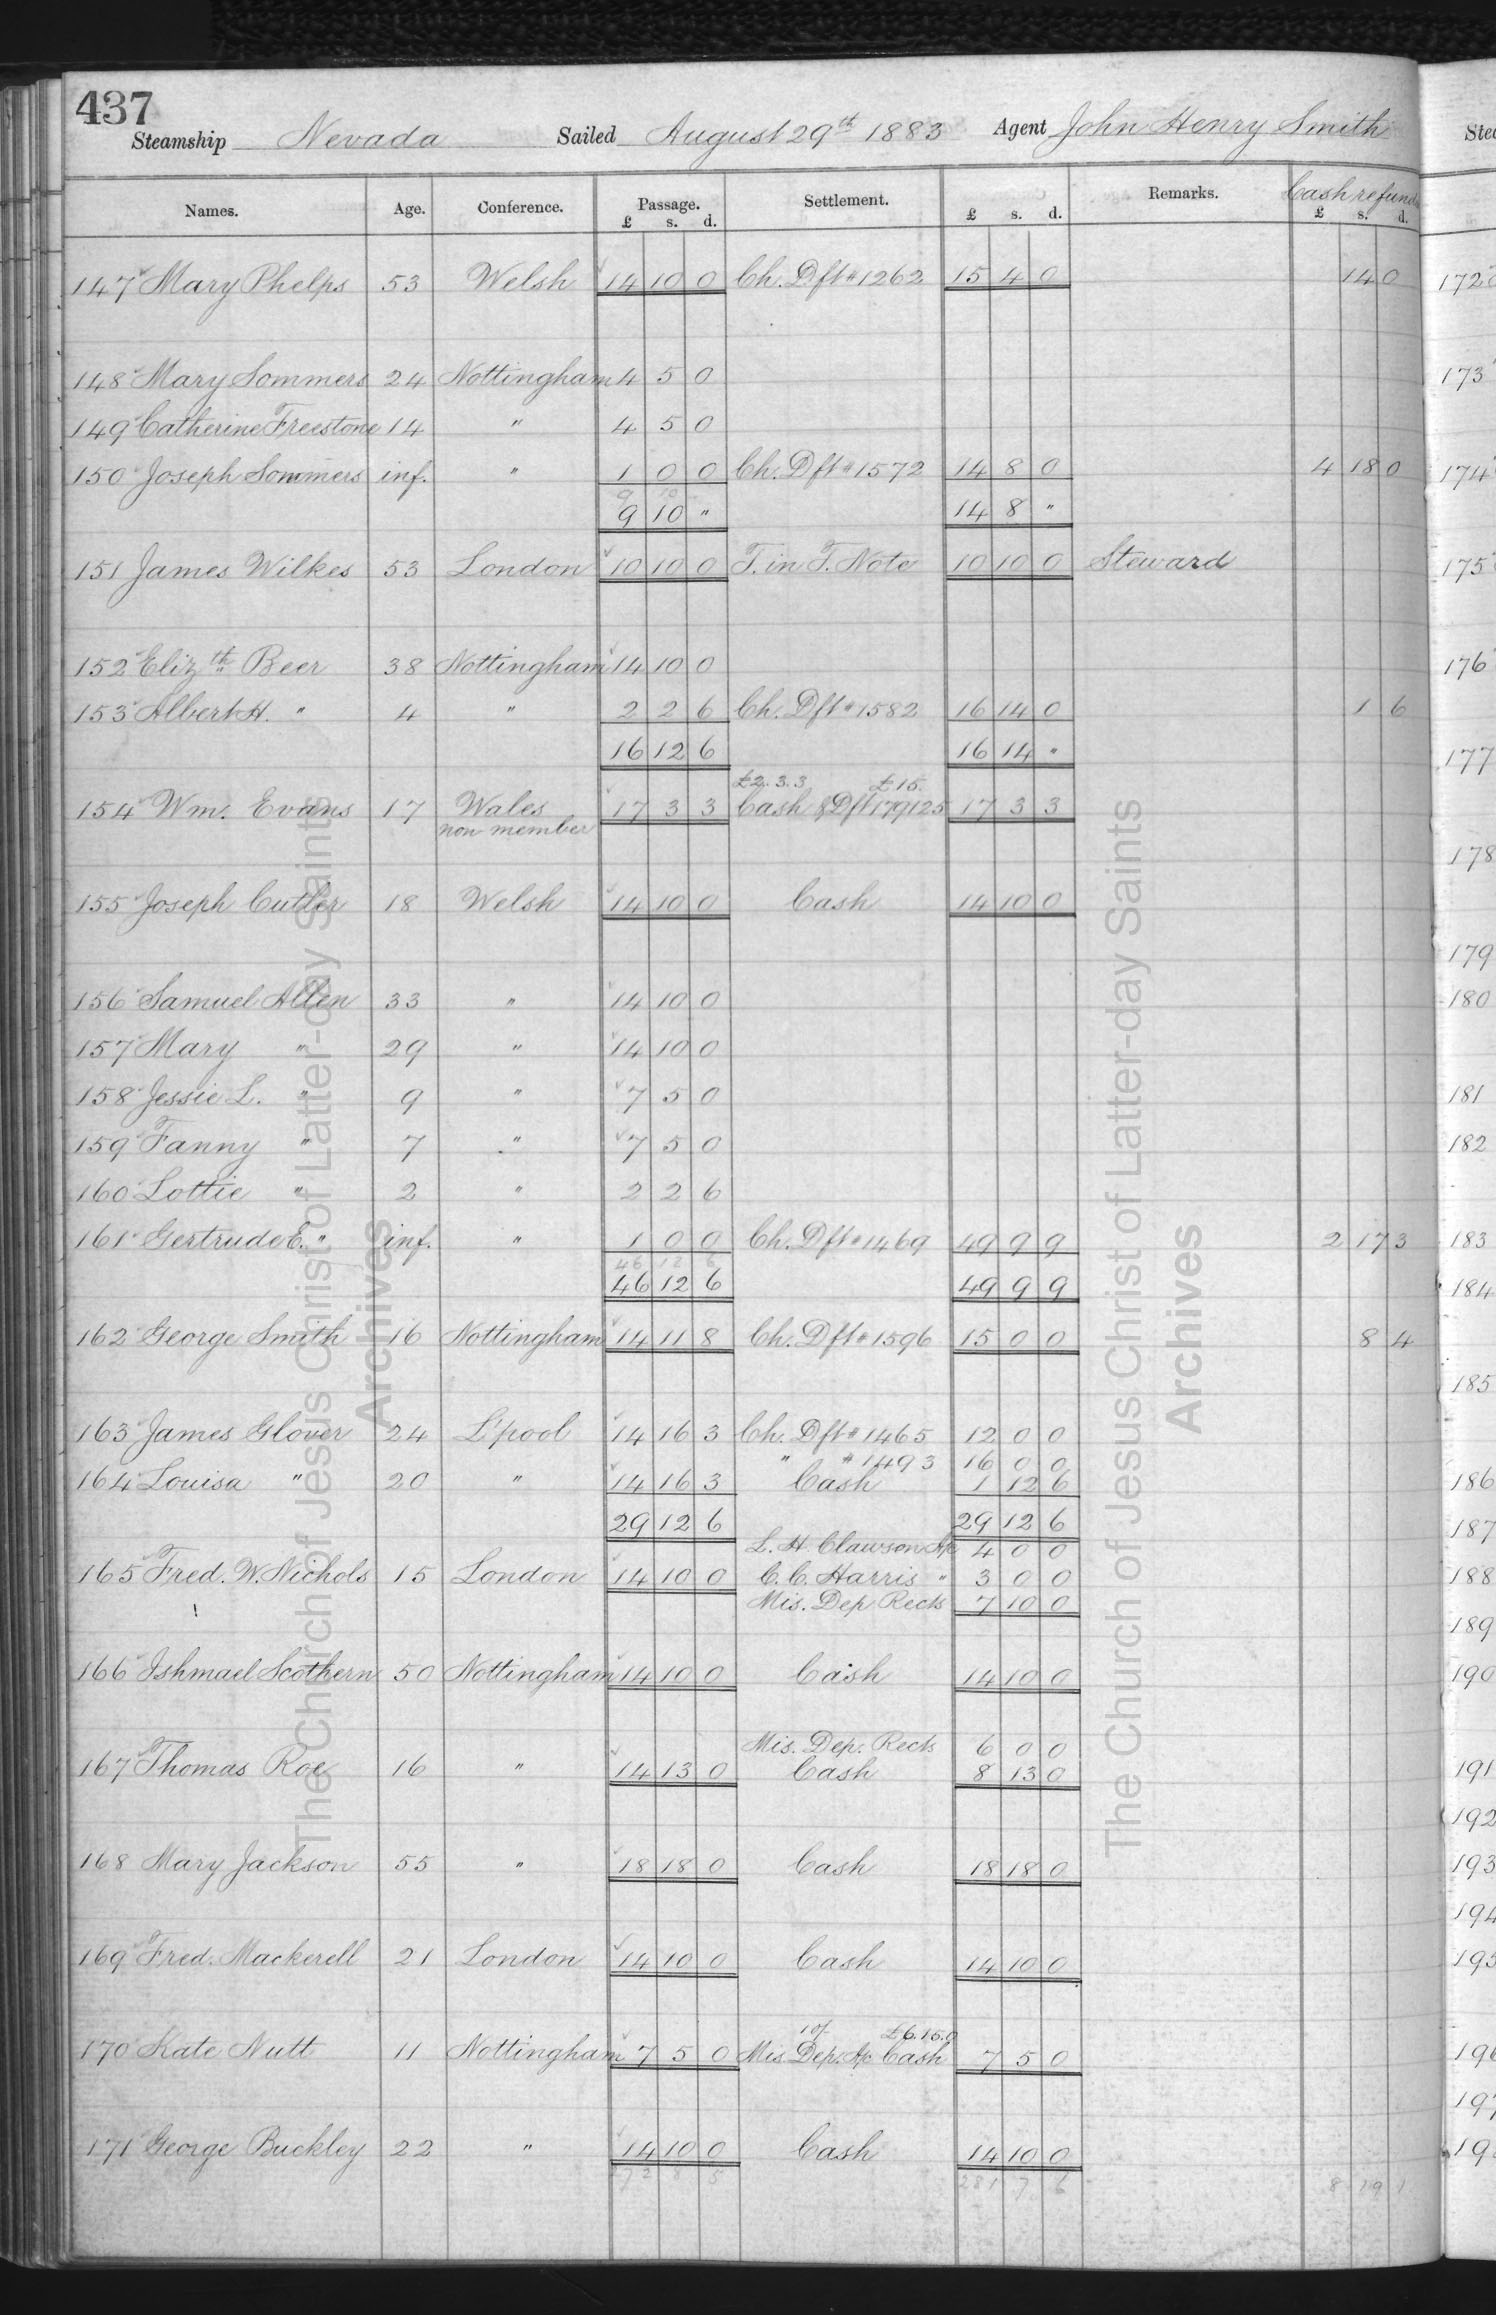 437
Steamship Nevada Sailed August 29th 1883 Agent John Henry Smith
Names. Age. Conference. Passage. Settlement. Remarks. Cash refund
£ s. d. £ s. d. £ s. d.
147 Mary Phelps 53 Welsh 14 10 0 Ch. Dft # 1262 15 4 0 14 0
148 Mary Sommers 24 Nottingham 4 5 0
149 Catherine Freestone 14 " 4 5 0
150 Joseph Sommers inf. " 1 0 0 Ch. Dft # 1572 14 8 0 4 18 0
9 10
9 10 " 14 8 "
151 James Wilkes 53 London 10 10 0 T. in T. Note 10 10 0 Steward
152 Elizth Beer 38 Nottingham 14 10 0
153 Albert H. " 4 " 2 2 6 Ch. Dft # 1582 16 14 0 1 6
16 12 6 16 14 "
£2. 3. 3 £15.
154 Wm. Evans 17 Wales 17 3 3 Cash & Dft 179125 17 3 3
non member
155 Joseph Cutler 18 Welsh 14 10 0 Cash 14 10 0
156 Samuel Allen 33 " 14 10 0
157 Mary " 29 " 14 10 0
158 Jessie L. " 9 " 7 5 0
159 Fanny " 7 " 7 5 0
160 Lottie " 2 " 2 2 6
161 Gertrude E. " inf. " 1 0 0 Ch. Dft # 1469 49 9 9 2 17 3
46 12 6
46 12 6 49 9 9
162 George Smith 16 Nottingham 14 11 8 Ch. Dft # 1596 15 0 0 8 4
163 James Glover 24 L'pool 14 16 3 Ch. Dft # 1465 12 0 0
" # 1493 16 0 0
164 Louisa " 20 " 14 16 3 Cash 1 12 6
29 12 6 29 12 6
L. H. Clawson A/c 4 0 0
165 Fred. W. Nichols 15 London 14 10 0 C. C. Harris " 3 0 0
Mis. Dep Rects 7 10 0
166 Ishmael Scothern 50 Nottingham 14 10 0 Cash 14 10 0
Mis. Dep. Rects 6 0 0
167 Thomas Roe 16 " 14 13 0 Cash 8 13 0
168 Mary Jackson 55 " 18 18 0 Cash 18 18 0
169 Fred. Mackerell 21 London 14 10 0 Cash 14 10 0
10/ £6.15.0
170 Kate Nutt 11 Nottingham 7 5 0 Mis. Dep. A/c Cash 7 5 0
171 George Buckley 22 " 14 10 0 Cash 14 10 0
281 7 6 8 19 1
The Church of Jesus Christ of Latter-day Saints
Archives
The Church of Jesus Christ of Latter-day Saints
Archives
172
173
174
175
176
177
178
179
180
181
182
183
184
185
186
187
188
189
190
191
192
193
194
195
196
197